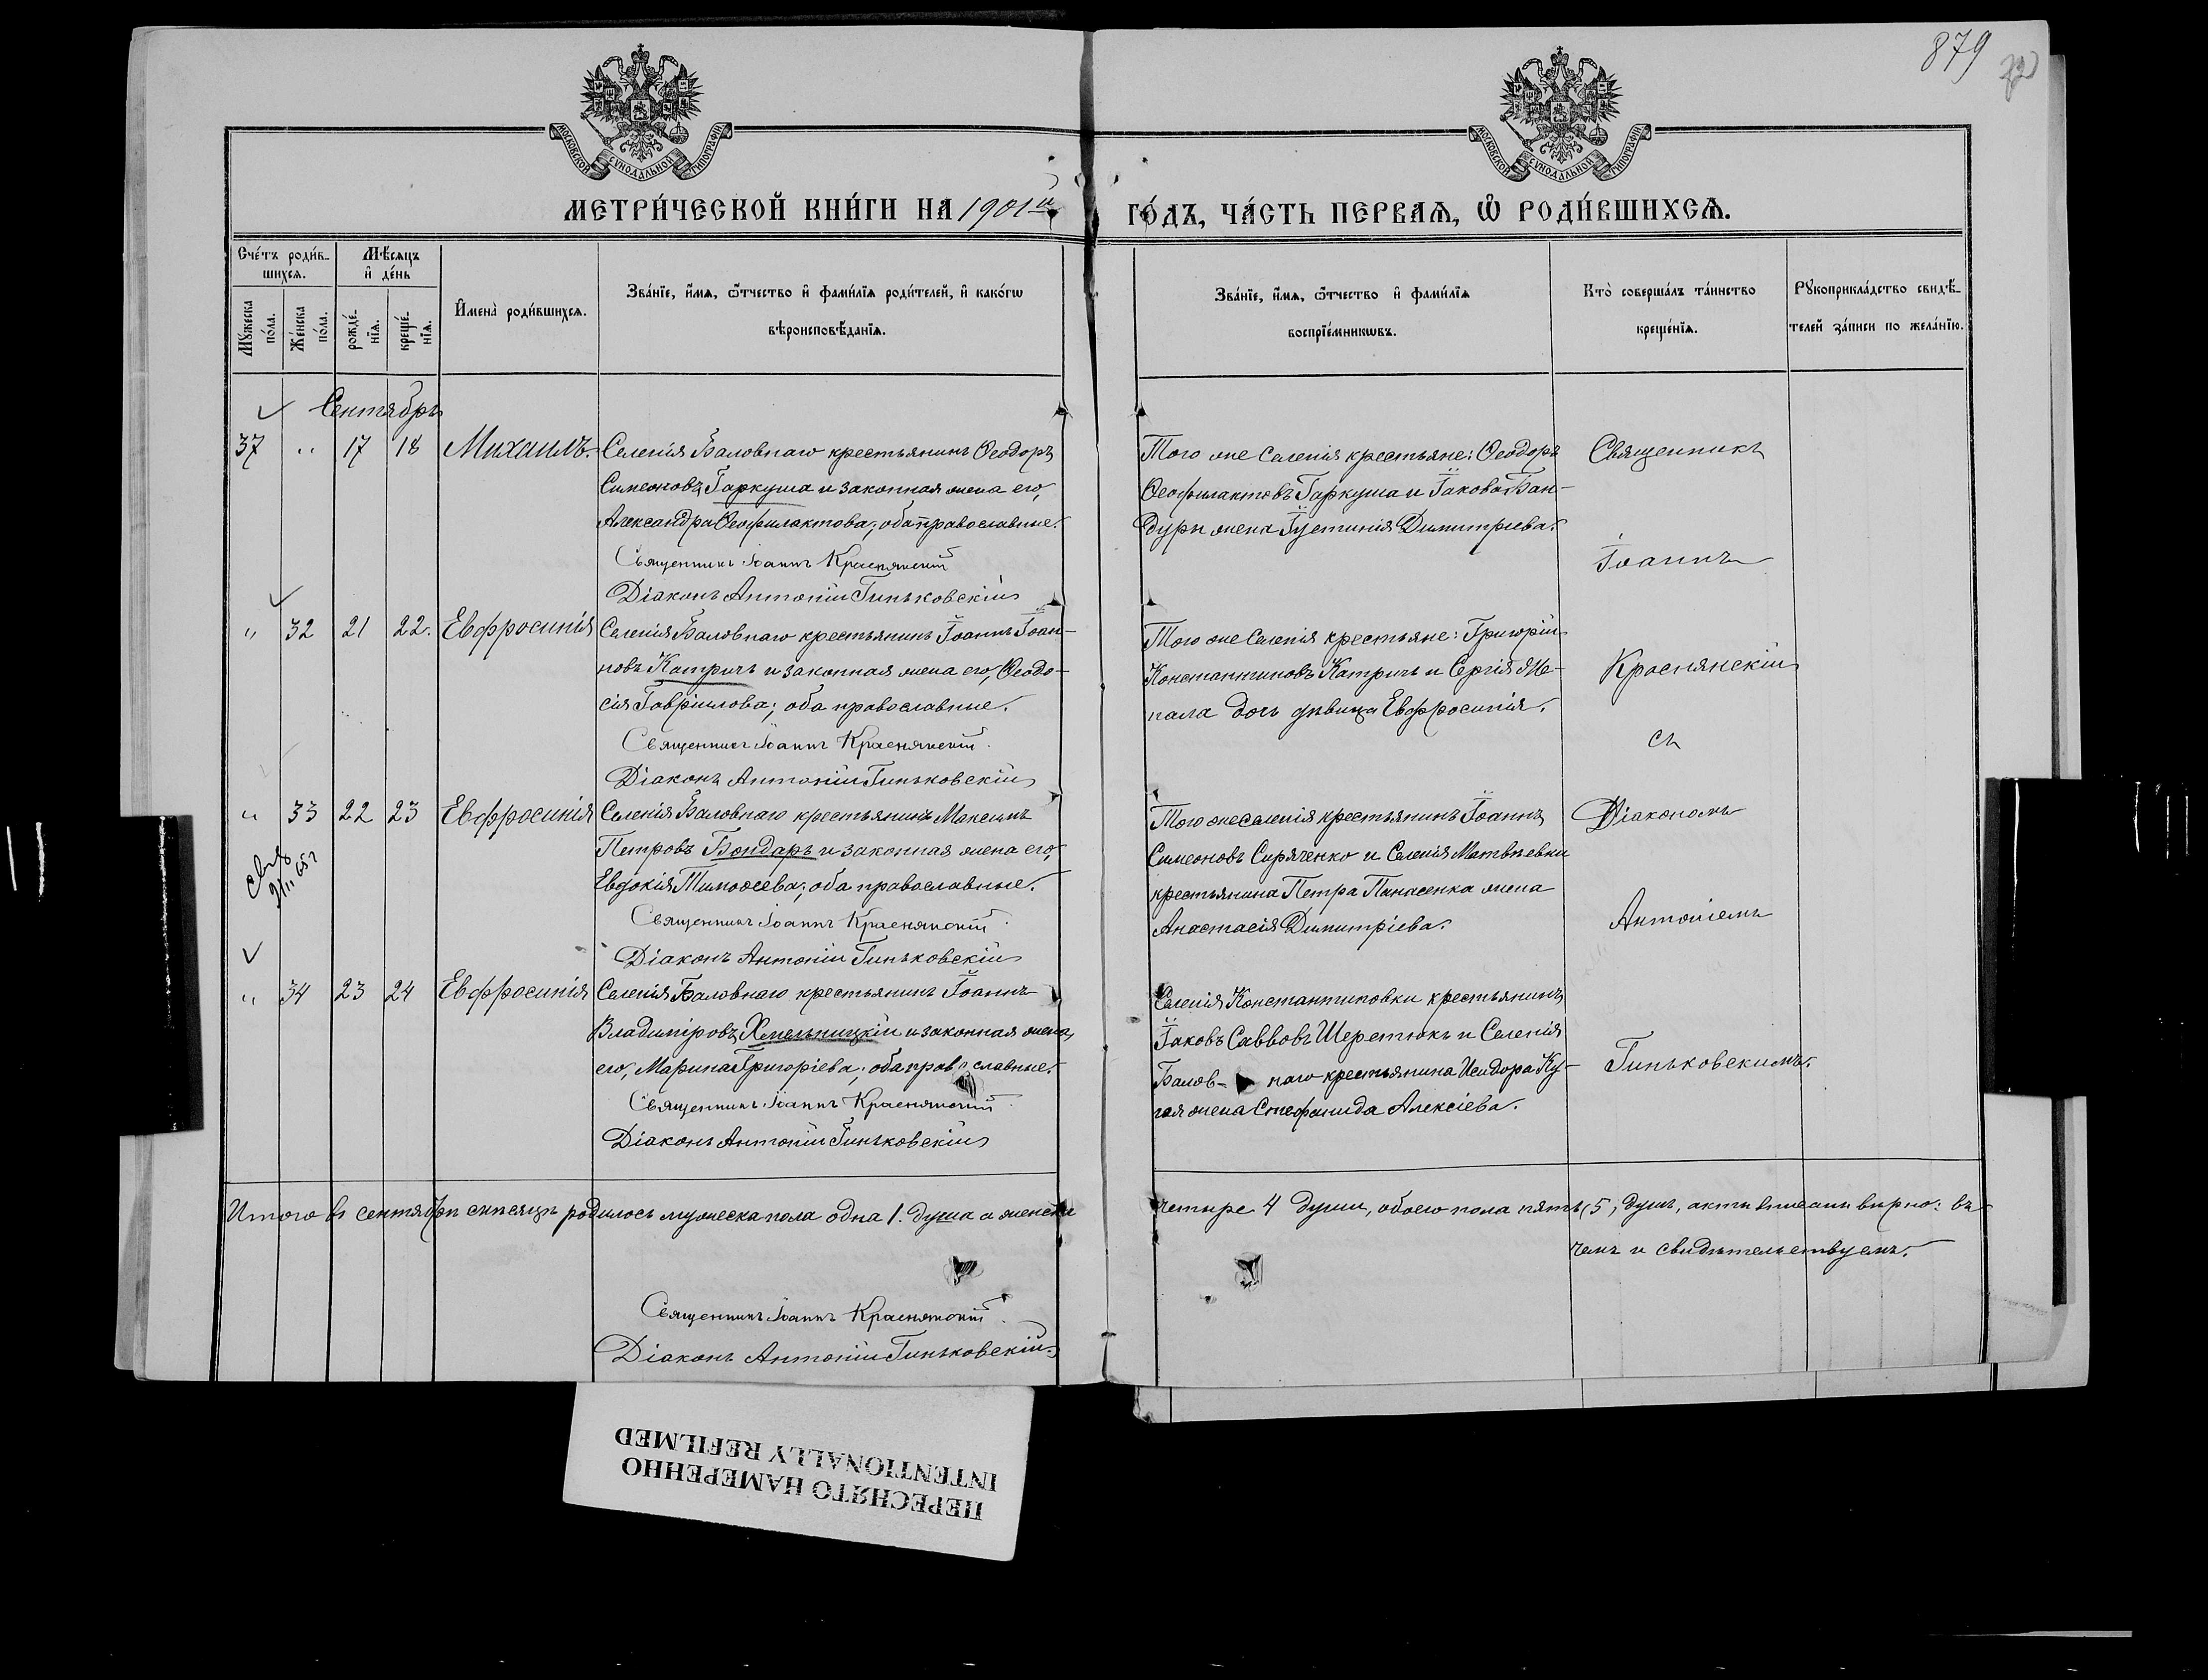 879
МОСКОВСКОЙ СѴНОДАЛЬНОЙ ТИПОГРАФІИ
МОСКОВСКОЙ СѴНОДАЛЬНОЙ ТИПОГРАФІИ
МЕТРИ́ЧЕСКОЙ КНИ́ГИ НА 1901й ГО́ДЪ, ЧА́СТЬ ПЕРВАѦ, Ѽ РОДИ́ВШИХСѦ.
Сче́тъ роди́в-
шихсѧ.
Мꙋ́жеска
по́ла.
Же́нска
по́ла.
Мѣ́сѧцъ
и҆ де́нь
рожде́-
нїѧ.
креще́-
нїѧ.
И҆мена̀ роди́вшихсѧ.
Зва́нїе, и҆́мѧ, ѻ҆́тчество и҆ фами́лїѧ роди́телей, и҆ како́гѡ
вѣроисповѣ́данїѧ.
Зва́нїе, и҆́мѧ, ѻ҆́тчество и҆ фами́лїѧ
воспрїе́мникѡвъ.
Кто̀ соверша́лъ та́инство
креще́нїѧ.
Рꙋкоприкла́дство свидѣ́-
телей за́писи по жела́нїю.
Сентябрь
37 " 17 18 Михаилъ.
Селенія Баловнаго крестьянинъ Ѳеодоръ
Симеоновъ Гаркуша и законная жена его,
Александра Ѳеофилактова; оба православные.
Священникъ Іоаннъ Краснянскій
Діаконъ Антоній Гиньковскій
Того же селенія крестьяне: Ѳеодоръ
Ѳеофилактовъ Гаркуша и Іакова Бан-
дуры жена Іустинія Димитріева.
" 32 21 22. Евфросинія
Селенія Баловнаго крестьянинъ Іоаннъ Іоан-
новъ Катричъ и законная жена его, Ѳеодо-
сія Гавріилова; оба православные.
Священникъ Іоаннъ Краснянскій.
Діаконъ Антоній Гиньковскій
Того же селенія крестьяне: Григорій
Константиновъ Катричъ и Сергія
дочь дѣвица Евфросинія.
" 33 22 23 Евфросинія
Селенія Баловнаго крестьянинъ Максимъ
Петровъ Бондаръ и законная жена его,
Евдокія Тимоѳеева; оба православные.
Священникъ Іоаннъ Краснянскій.
Діаконъ Антоній Гиньковскій
Того же селенія крестьянинъ Іоаннъ
Симеоновъ Сиряченко и Селенія Матвѣевки
крестьянина Петра Панасенка жена
Анастасія Димитріева.
" 34 23 24 Евфросинія
Селенія Баловнаго крестьянинъ Іоаннъ
Владиміровъ Хмельницкій и законная жена
его, Марина Григоріева; оба православные.
Священникъ Іоаннъ Краснянскій.
Діаконъ Антоній Гиньковскій
Селенія Константиновки крестьянинъ
Іаковъ Саввовъ Шеретюкъ и Селенія
Балов- наго крестьянина Исидора Ку-
жена Стефанида Алексіева.
Священникъ
Іоаннъ
Краснянскій
съ
Діакономъ
Антоніемъ
Гиньковскимъ.
Итого въ сентябрѣ мѣсяцѣ родилось мужеска пола одна 1. душа а женска четыре 4 души, обоего пола пять, 5, душъ, акты вписаны вѣрно: въ
чемъ и свидѣтельствуемъ.
Священникъ Іоаннъ Краснянскій.
Діаконъ Антоній Гиньковскій.
ПЕРЕСНЯТО НАМЕРЕННО
INTENTIONALLY REFILMED